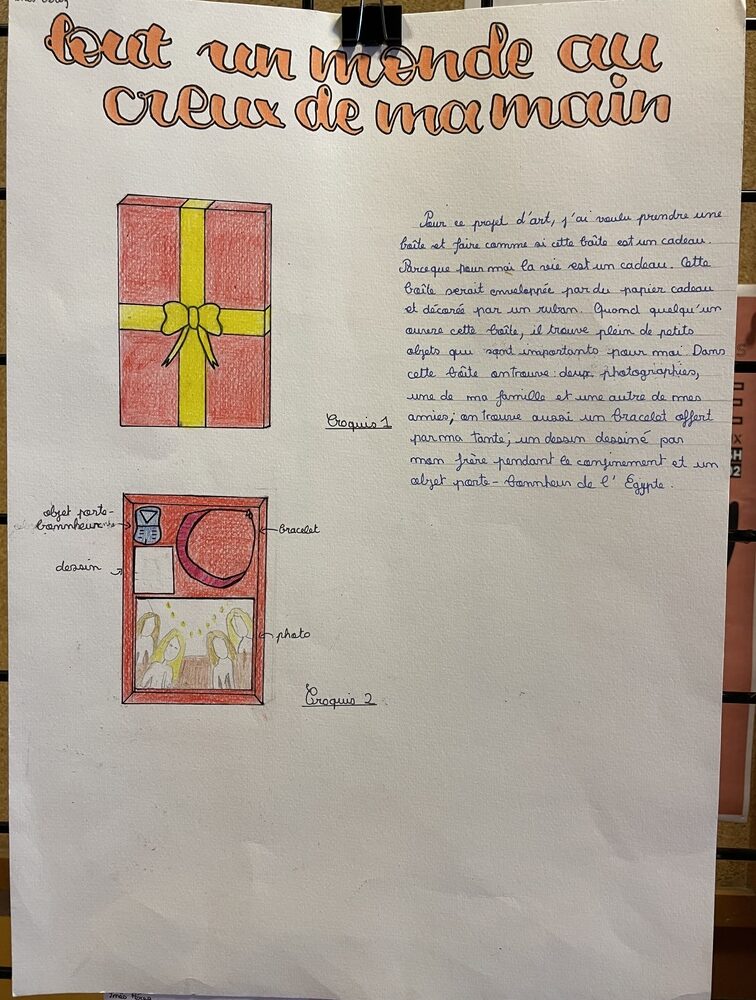 tout un monde au
creux de ma main
Pour ce projet d'art, j'ai voulu prendre une
boîte et faire comme si cette boîte est un cadeau.
Parceque pour moi la vie est un cadeau. Cette
boîte serait enveloppée par du papier cadeau
et décorée par un ruban. Quand quelqu'un
ouvre cette boîte, il trouve plein de petits
objets qui sont importants pour moi. Dans
cette boîte on trouve : deux photographies,
une de ma famille et une autre de mes
amies; on trouve aussi un bracelet offert
par ma tante; un dessin dessiné par
mon frère pendant le confinement et un
objet porte-bonnheur de l'Egypte.
Croquis 1
objet porte-
bonnheur
bracelet
dessin
photo
Croquis 2